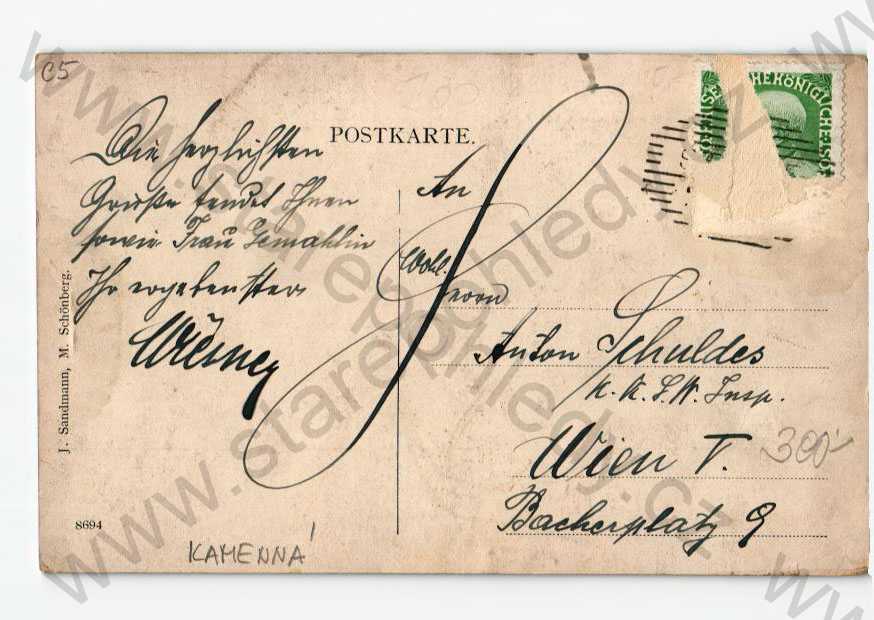 C5
POSTKARTE.
Die herzlichsten
Grüße sendet Ihnen
sowie Frau Gemahlin
Ihr ergebenster
An
Wohl.
Herrn
Anton Schuldes
Insp.
Wien V.
Bacherplatz 9
300,-
J. Sandmann, M. Schönberg.
8694
KAMENNÁ
www.starepohledy.cz